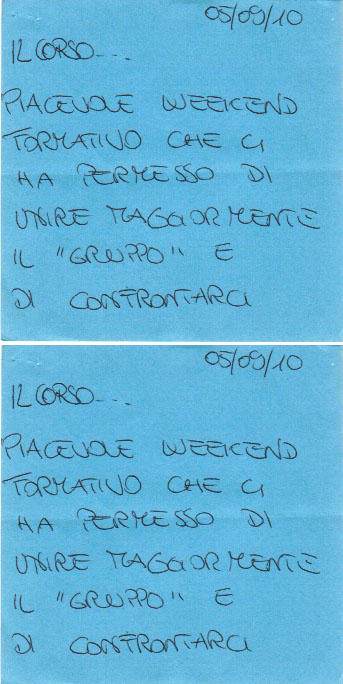 05/09/10
IL CORSO...
PIACEVOLE WEEKEND
FORMATIVO CHE CI
HA PERMESSO DI
UNIRE MAGGIORMENTE
IL "GRUPPO" E
DI CONFRONTARCI
05/09/10
IL CORSO...
PIACEVOLE WEEKEND
FORMATIVO CHE CI
HA PERMESSO DI
UNIRE MAGGIORMENTE
IL "GRUPPO" E
DI CONFRONTARCI